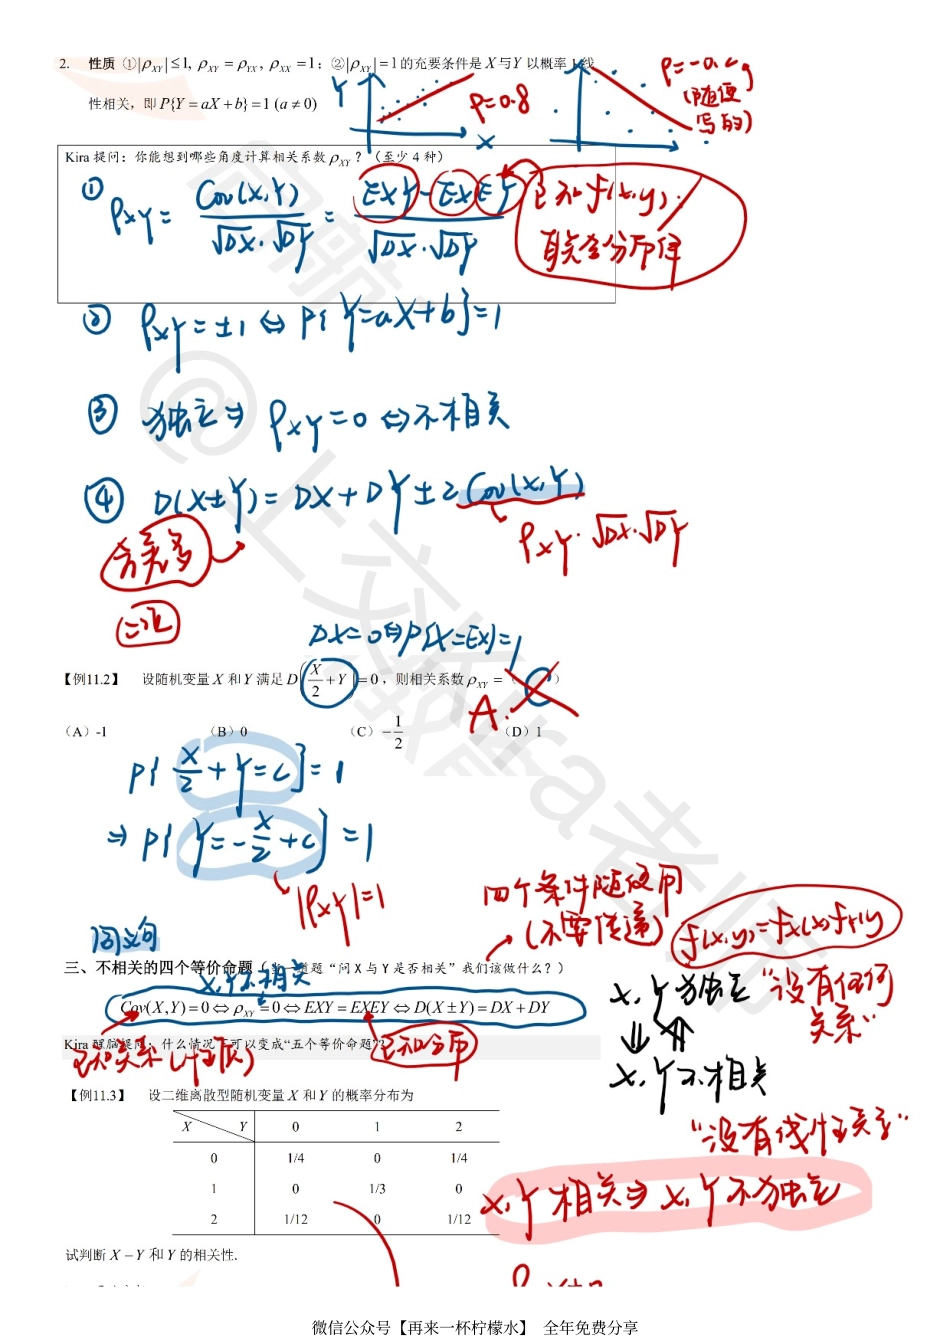 2. 性质 ①|ρXY| ≤ 1, ρXY = ρYX, ρXX = 1；②|ρXY| = 1的充要条件是 X与Y 以概率 1 线
性相关，即 P{Y = aX + b} = 1 (a ≠ 0)
Y ρ=0.8 X
ρ=-0.
(随便
写的)
Kira 提问：你能想到哪些角度计算相关系数 ρXY？（至少 4 种）
① ρXY = Cov(X,Y) / √DX·√DY = EXY-EXEY / √DX·√DY
已知f(x,y)
② ρXY=±1 ⇔ P{Y=aX+b}=1
③ 独立⇒ ρXY=0 ⇔不相关
④ D(X±Y)= DX+DY±2Cov(X,Y)
ρXY·√DX·√DY
方差多
DX=0⇔P{X=EX}=1
【例11.2】 设随机变量 X 和 Y 满足 D(X/2 + Y) = 0，则相关系数 ρXY =（C）
A.
（A）-1 （B）0 （C）-1/2 （D）1
P{X/2+Y=C}=1
⇒ P{Y=-X/2+C}=1
|ρXY|=1
四个条件随便用
(不要传递)
f(x,y)=fX(x)fY(y)
同义句
三、不相关的四个等价命题（当一道题“问 X 与 Y 是否相关”我们该做什么？）
X,Y不相关
Cov(X,Y) = 0 ⇔ ρXY = 0 ⇔ EXY = EXEY ⇔ D(X ± Y) = DX + DY
Kira 醒脑提问：什么情况下可以变成“五个等价命题”？
已知关系(性质)
已知分布
X,Y独立 “没有任何
关系”
⇓ ⇑
X,Y不相关
“没有线性关系”
X,Y相关⇒X,Y不独立
【例11.3】 设二维离散型随机变量 X 和 Y 的概率分布为
X Y 0 1 2
0 1/4 0 1/4
1 0 1/3 0
2 1/12 0 1/12
试判断 X − Y 和 Y 的相关性.
@上交Kira老师
微信公众号【再来一杯柠檬水】 全年免费分享